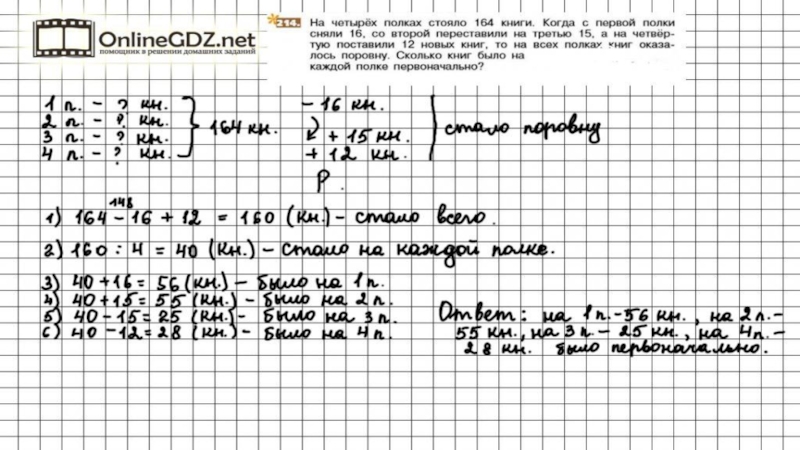 OnlineGDZ.net
помощник в решении домашних заданий
214. На четырёх полках стояло 164 книги. Когда с первой полки
сняли 16, со второй переставили на третью 15, а на четвёр-
тую поставили 12 новых книг, то на всех полках книг оказа-
лось поровну. Сколько книг было на
каждой полке первоначально?
1 п. – ? кн.
2 п. – ? кн.
3 п. – ? кн.
4 п. – ? кн.
164 кн.
– 16 кн.
+ 15 кн.
+ 12 кн.
стало поровну
Р.
148
1) 164 – 16 + 12 = 160 (кн.) – стало всего.
2) 160 : 4 = 40 (кн.) – стало на каждой полке.
3) 40 + 16 = 56 (кн.) – было на 1 п.
4) 40 + 15 = 55 (кн.) – было на 2 п.
5) 40 – 15 = 25 (кн.) – было на 3 п.
6) 40 – 12 = 28 (кн.) – было на 4 п.
Ответ: на 1 п. – 56 кн., на 2 п. –
55 кн., на 3 п. – 25 кн., на 4 п. –
28 кн. было первоначально.